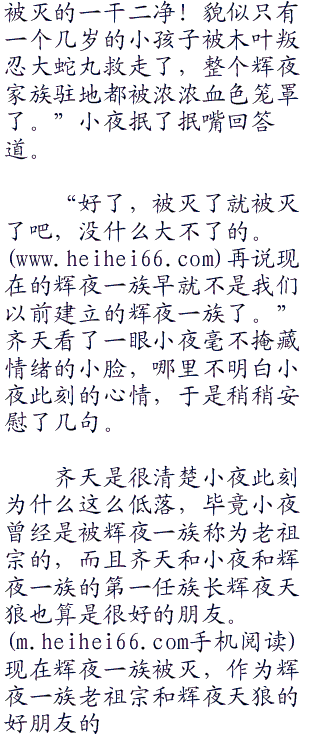 被灭的一干二净！貌似只有
一个几岁的小孩子被木叶叛
忍大蛇丸救走了，整个辉夜
家族驻地都被浓浓血色笼罩
了。”小夜抿了抿嘴回答
道。
“好了，被灭了就被灭
了吧，没什么大不了的。
(www.heihei66.com)再说现
在的辉夜一族早就不是我们
以前建立的辉夜一族了。”
齐天看了一眼小夜毫不掩藏
情绪的小脸，哪里不明白小
夜此刻的心情，于是稍稍安
慰了几句。
齐天是很清楚小夜此刻
为什么这么低落，毕竟小夜
曾经是被辉夜一族称为老祖
宗的，而且齐天和小夜和辉
夜一族的第一任族长辉夜天
狼也算是很好的朋友。
(m.heihei66.com手机阅读)
现在辉夜一族被灭，作为辉
夜一族老祖宗和辉夜天狼的
好朋友的